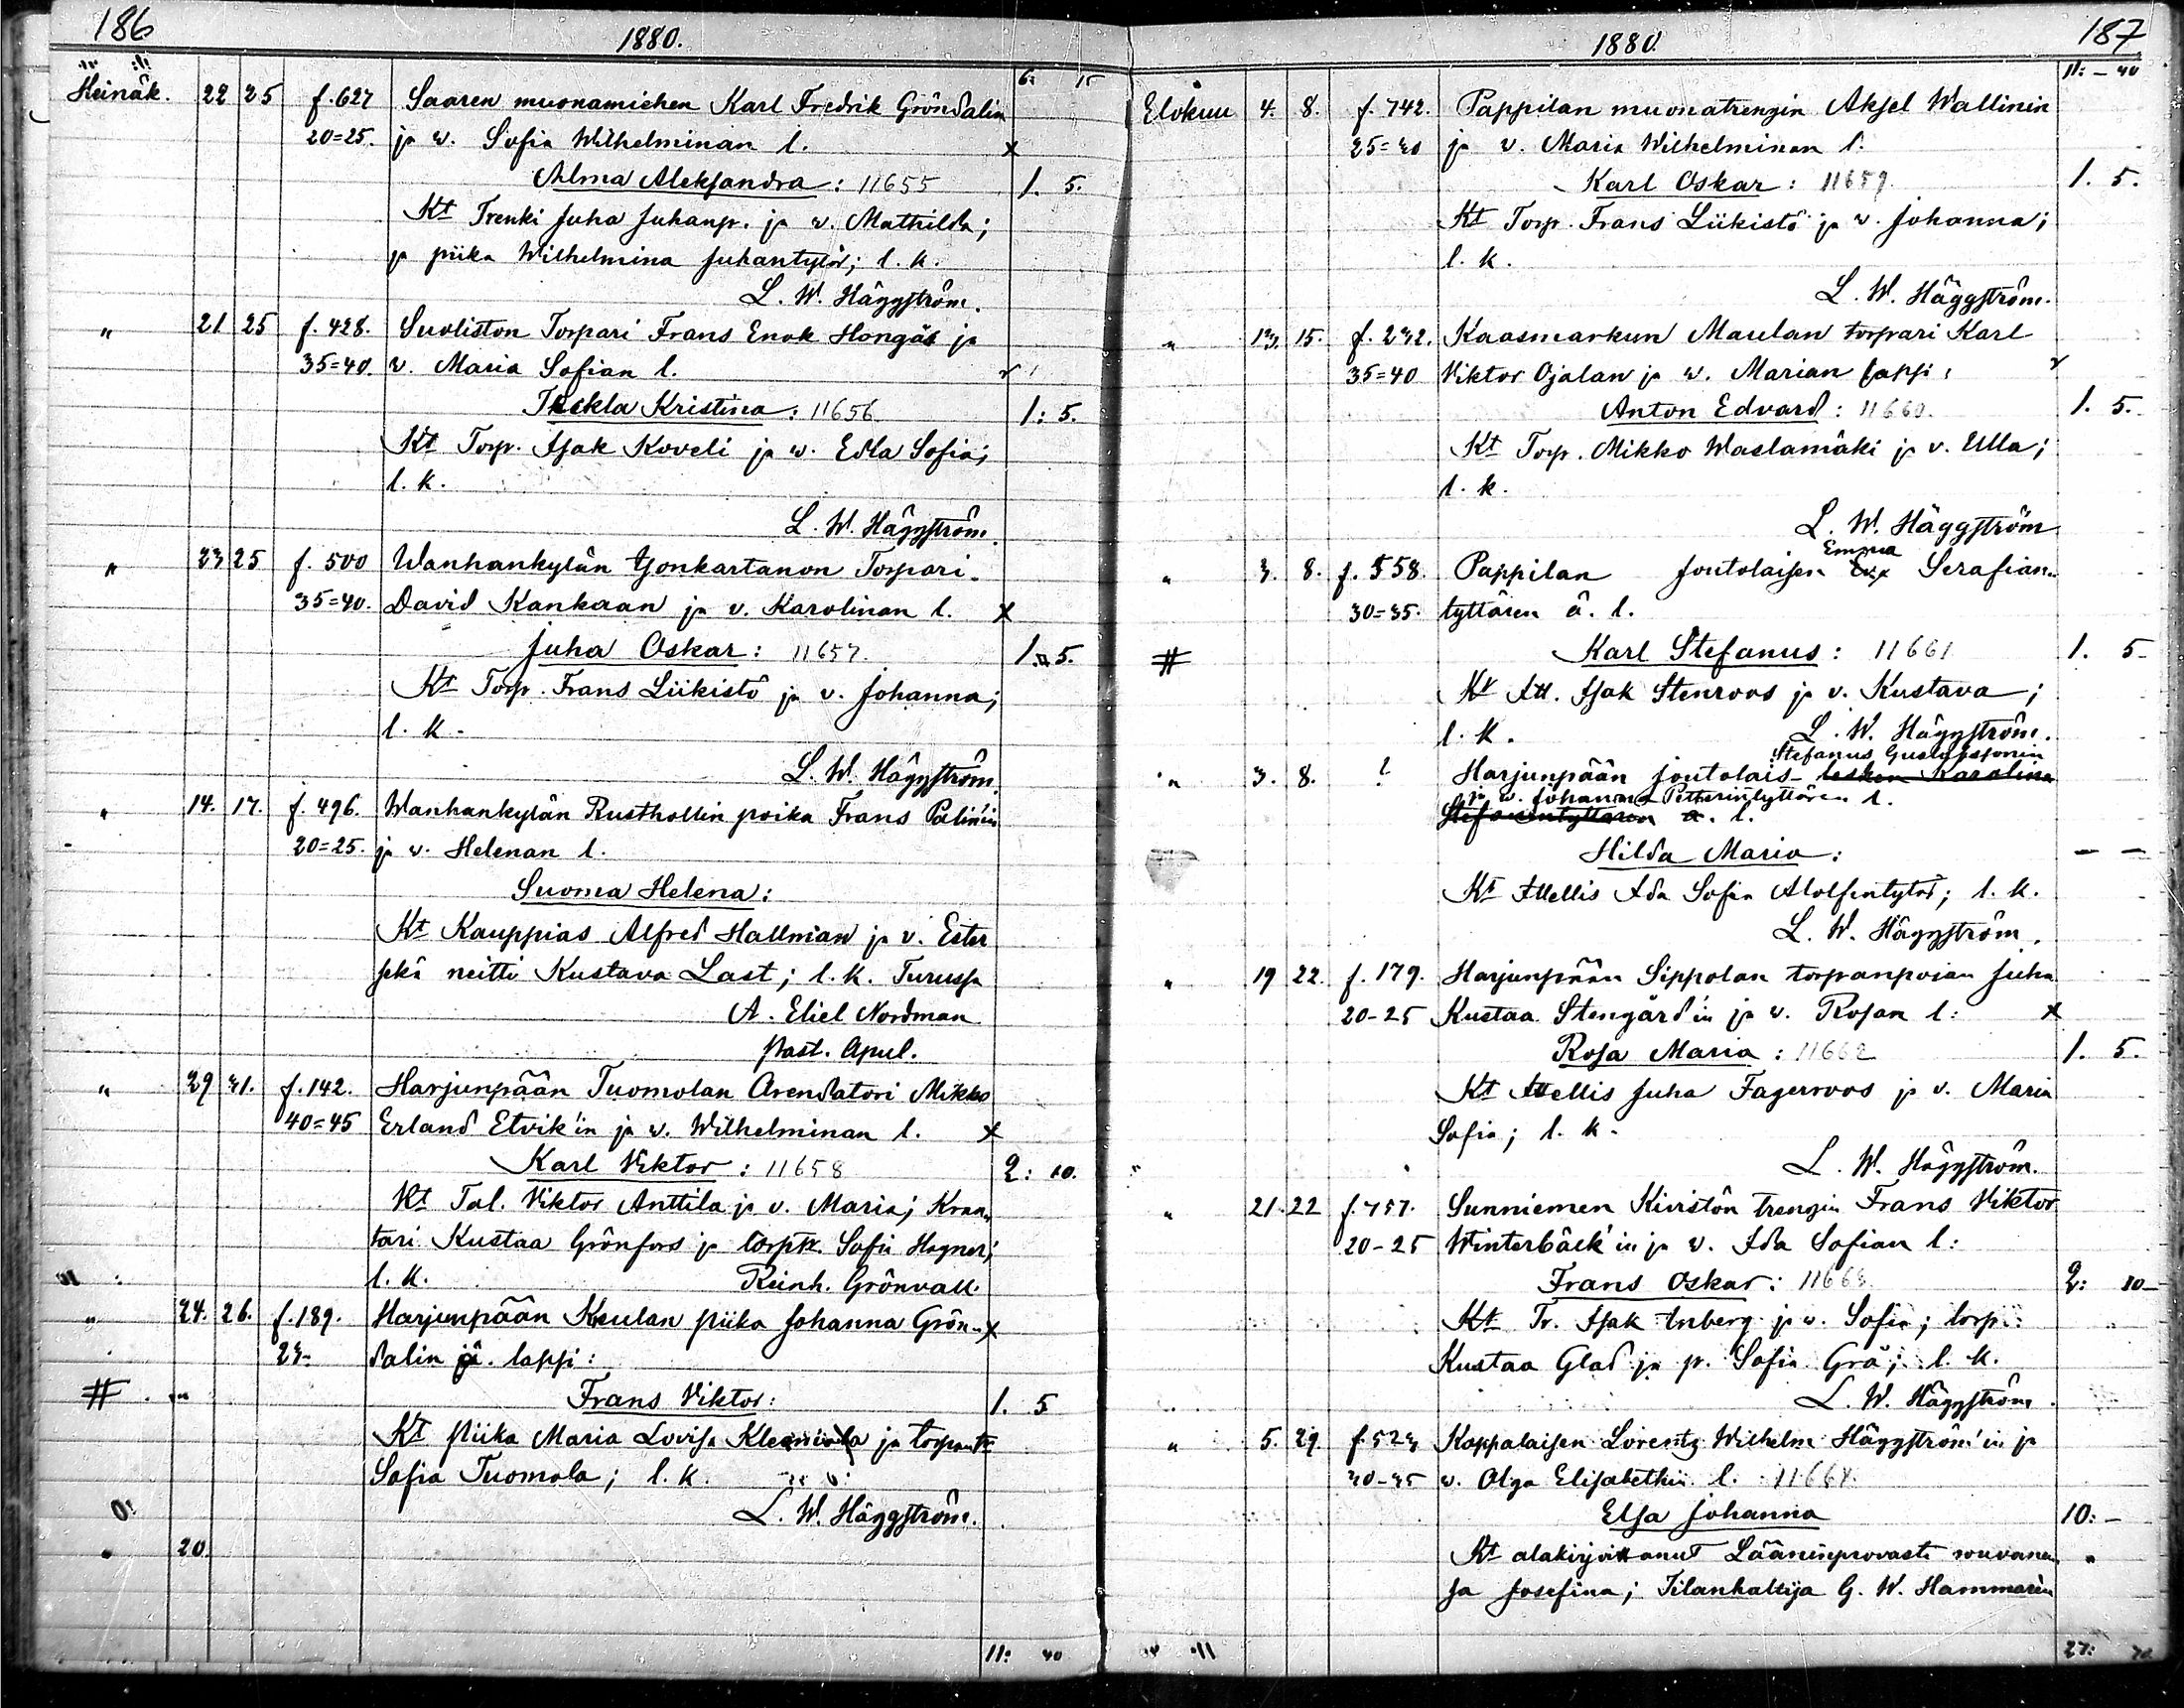 186
1880.
6: 15
Heinäk. 22 25 f. 627 Saaren muonamiehen Karl Fredrik Gröndalin
20=25. ja w. Sofia Wilhelminan l. x
Alma Aleksandra: 11655 1. 5.
Kt Trenki Juha Juhanp. ja w. Mathilda;
ja piika Wilhelmina Juhantytär; l. k.
L. W. Häggström.
" 21 25 f. 428. Suoliston Torpari Frans Enok Hongås ja
35=40. w. Maria Sofian l.
Thekla Kristina: 11656 1: 5.
Kt Torp. Isak Koveli ja w. Edla Sofia;
l. k.
L. W. Häggström.
" 23 25 f. 500 Wanhankylän Isonkartanon Torpari
35=40. David Kankaan ja v. Karolinan l. x
Juha Oskar: 11657. 1. 5.
Kt Torp. Frans Liikistö ja v. Johanna;
l. k.
L. W. Häggström.
" 14. 17. f. 496. Wanhankylän Rusthollin poika Frans Palin'in
20=25. ja v. Helenan l.
Suoma Helena:
Kt Kauppias Alfred Hallman ja v. Ester
sekä neitti Kustava Last; l. k. Turussa
A. Eliel Nordman
Past. Apul.
" 29 31. f. 142. Harjunpään Tuomolan Arendatori Mikko
40=45 Erland Etvik'in ja w. Wilhelminan l. x
Karl Viktor: 11658 2: 10.
Kt Tal. Viktor Anttila ja v. Maria; Kraa-
tari Kustaa Grönfors ja torptr. Sofia Hagner;
l. k. Reinh. Grönvall.
" 24. 26. f. 189. Harjunpään Keulan piika Johanna Grön- x
23- dalin ä. lapsi:
# Frans Viktor: 1. 5
Kt Piika Maria Lovisa Kleemola ja torpantr
Sofia Tuomola; l. k.
L. W. Häggström.
" 20.
11: 40
187
1880.
11: - 40
Elokuu 4. 8. f. 742. Pappilan muonatrengin Aksel Wallinin
25=30 ja v. Maria Wilhelminan l.
Karl Oskar: 11659. 1. 5.
Kt Torp. Frans Liikistö ja w. Johanna;
l. k.
L. W. Häggström.
" 13. 15. f. 232. Kaasmarkun Maulan torpari Karl
35=40 Viktor Ojalan ja w. Marian lapsi:
Anton Edvard: 11660. 1. 5.
Kt Torp. Mikko Waslamäki ja v. Ulla;
l. k.
L. W. Häggström
Emma
" 3. 8. f. 558. Pappilan Joutolaisen Serafian-
30=35. tyttären ä. l.
# Karl Stefanus: 11661 1. 5-
Kt Itt. Isak Stenroos ja v. Kustava;
l. k. L. W. Häggström.
Stefanus Gustafssonin
" 3. 8. ? Harjunpään joutolais- lesken Karolina
ja w. Johanna Petterintyttären l.
Stefanintyttären ä. l.
Hilda Maria: - -
Kt Ittellis Ida Sofia Adolfintytär; l. k.
L. W. Häggström.
" 19 22. f. 179. Harjunpään Sippolan torpanpojan Juha
20-25 Kustaa Stengård'in ja w. Rosan l: x
Rosa Maria: 11662 1. 5.
Kt Ittellis Juha Fagerroos ja v. Maria
Sofia; l. k.
L. W. Häggström.
" 21. 22 f. 757. Sunniemen Kiviston trengin Frans Viktor
20-25 Winterbäck'in ja w. Ida Sofian l:
Frans Oskar: 11663. 2: 10-
Kt Tr. Isak Inberg ja w. Sofia; torp.
Kustaa Glad ja p. Sofia Grå; l. k.
L. W. Häggström.
" 5. 29. f. 523 Kappalaisen Lorentz Wilhelm Häggström'in ja
30-35 w. Olga Elisabethin l. 11664.
Elsa Johanna 10: -
Kt alakirjoittanut Lääninprovasti rouvanen-
sa Josefina; Tilanhaltija G. W. Hammarén
27: 70